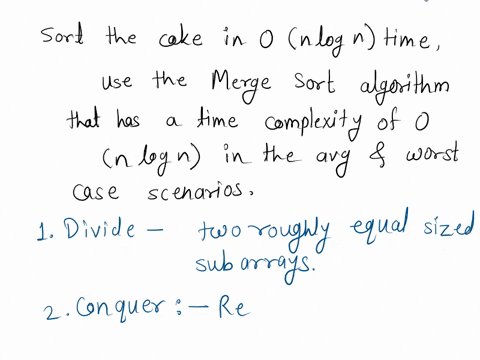 Sort the cake in O (n log n) time,
use the Merge Sort algorithm
that has a time complexity of O
(n log n) in the avg & worst
case scenarios.
1. Divide — two roughly equal sized
sub arrays.
2. Conquer :— Re